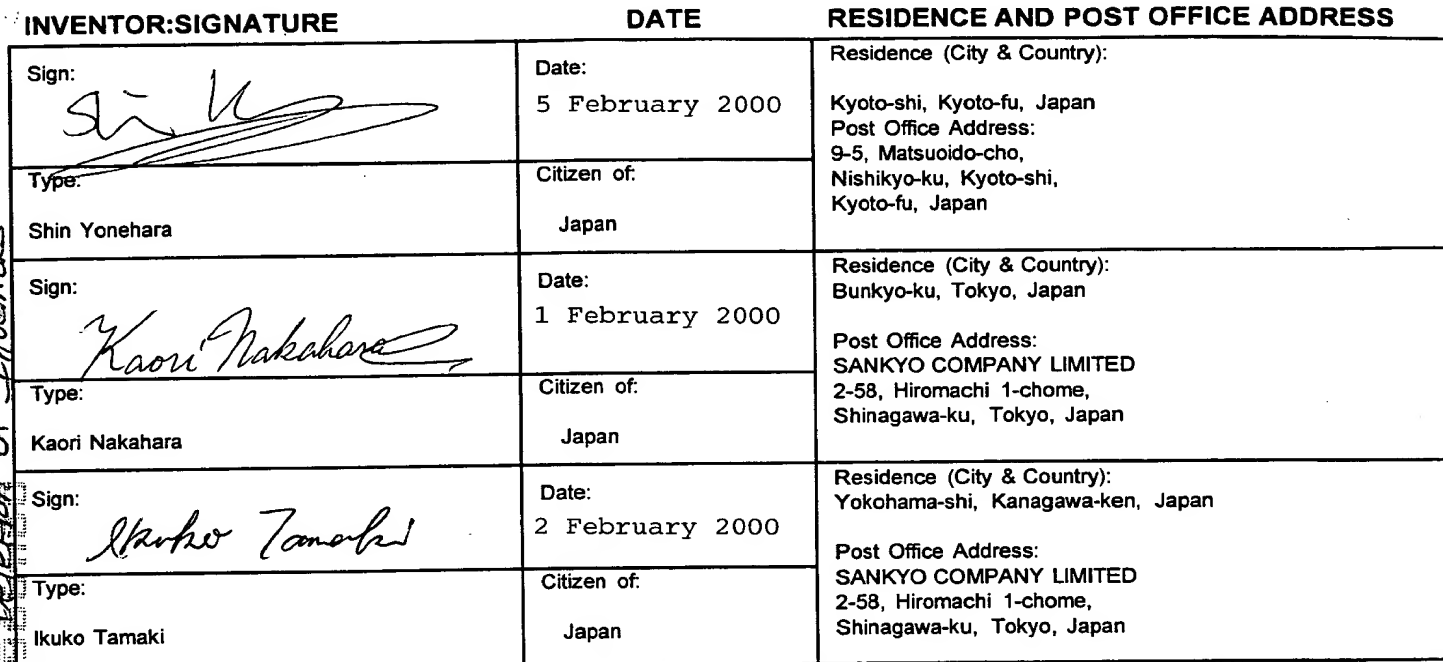 INVENTOR:SIGNATURE DATE RESIDENCE AND POST OFFICE ADDRESS
Sign:
Date:
5 February 2000
Residence (City & Country):
Kyoto-shi, Kyoto-fu, Japan
Post Office Address:
9-5, Matsuoido-cho,
Nishikyo-ku, Kyoto-shi,
Kyoto-fu, Japan
Type:
Shin Yonehara
Citizen of:
Japan
Sign:
Kaori Nakahara
Date:
1 February 2000
Residence (City & Country):
Bunkyo-ku, Tokyo, Japan
Post Office Address:
SANKYO COMPANY LIMITED
2-58, Hiromachi 1-chome,
Shinagawa-ku, Tokyo, Japan
Type:
Kaori Nakahara
Citizen of:
Japan
Sign:
Ikuko Tamaki
Date:
2 February 2000
Residence (City & Country):
Yokohama-shi, Kanagawa-ken, Japan
Post Office Address:
SANKYO COMPANY LIMITED
2-58, Hiromachi 1-chome,
Shinagawa-ku, Tokyo, Japan
Type:
Ikuko Tamaki
Citizen of:
Japan